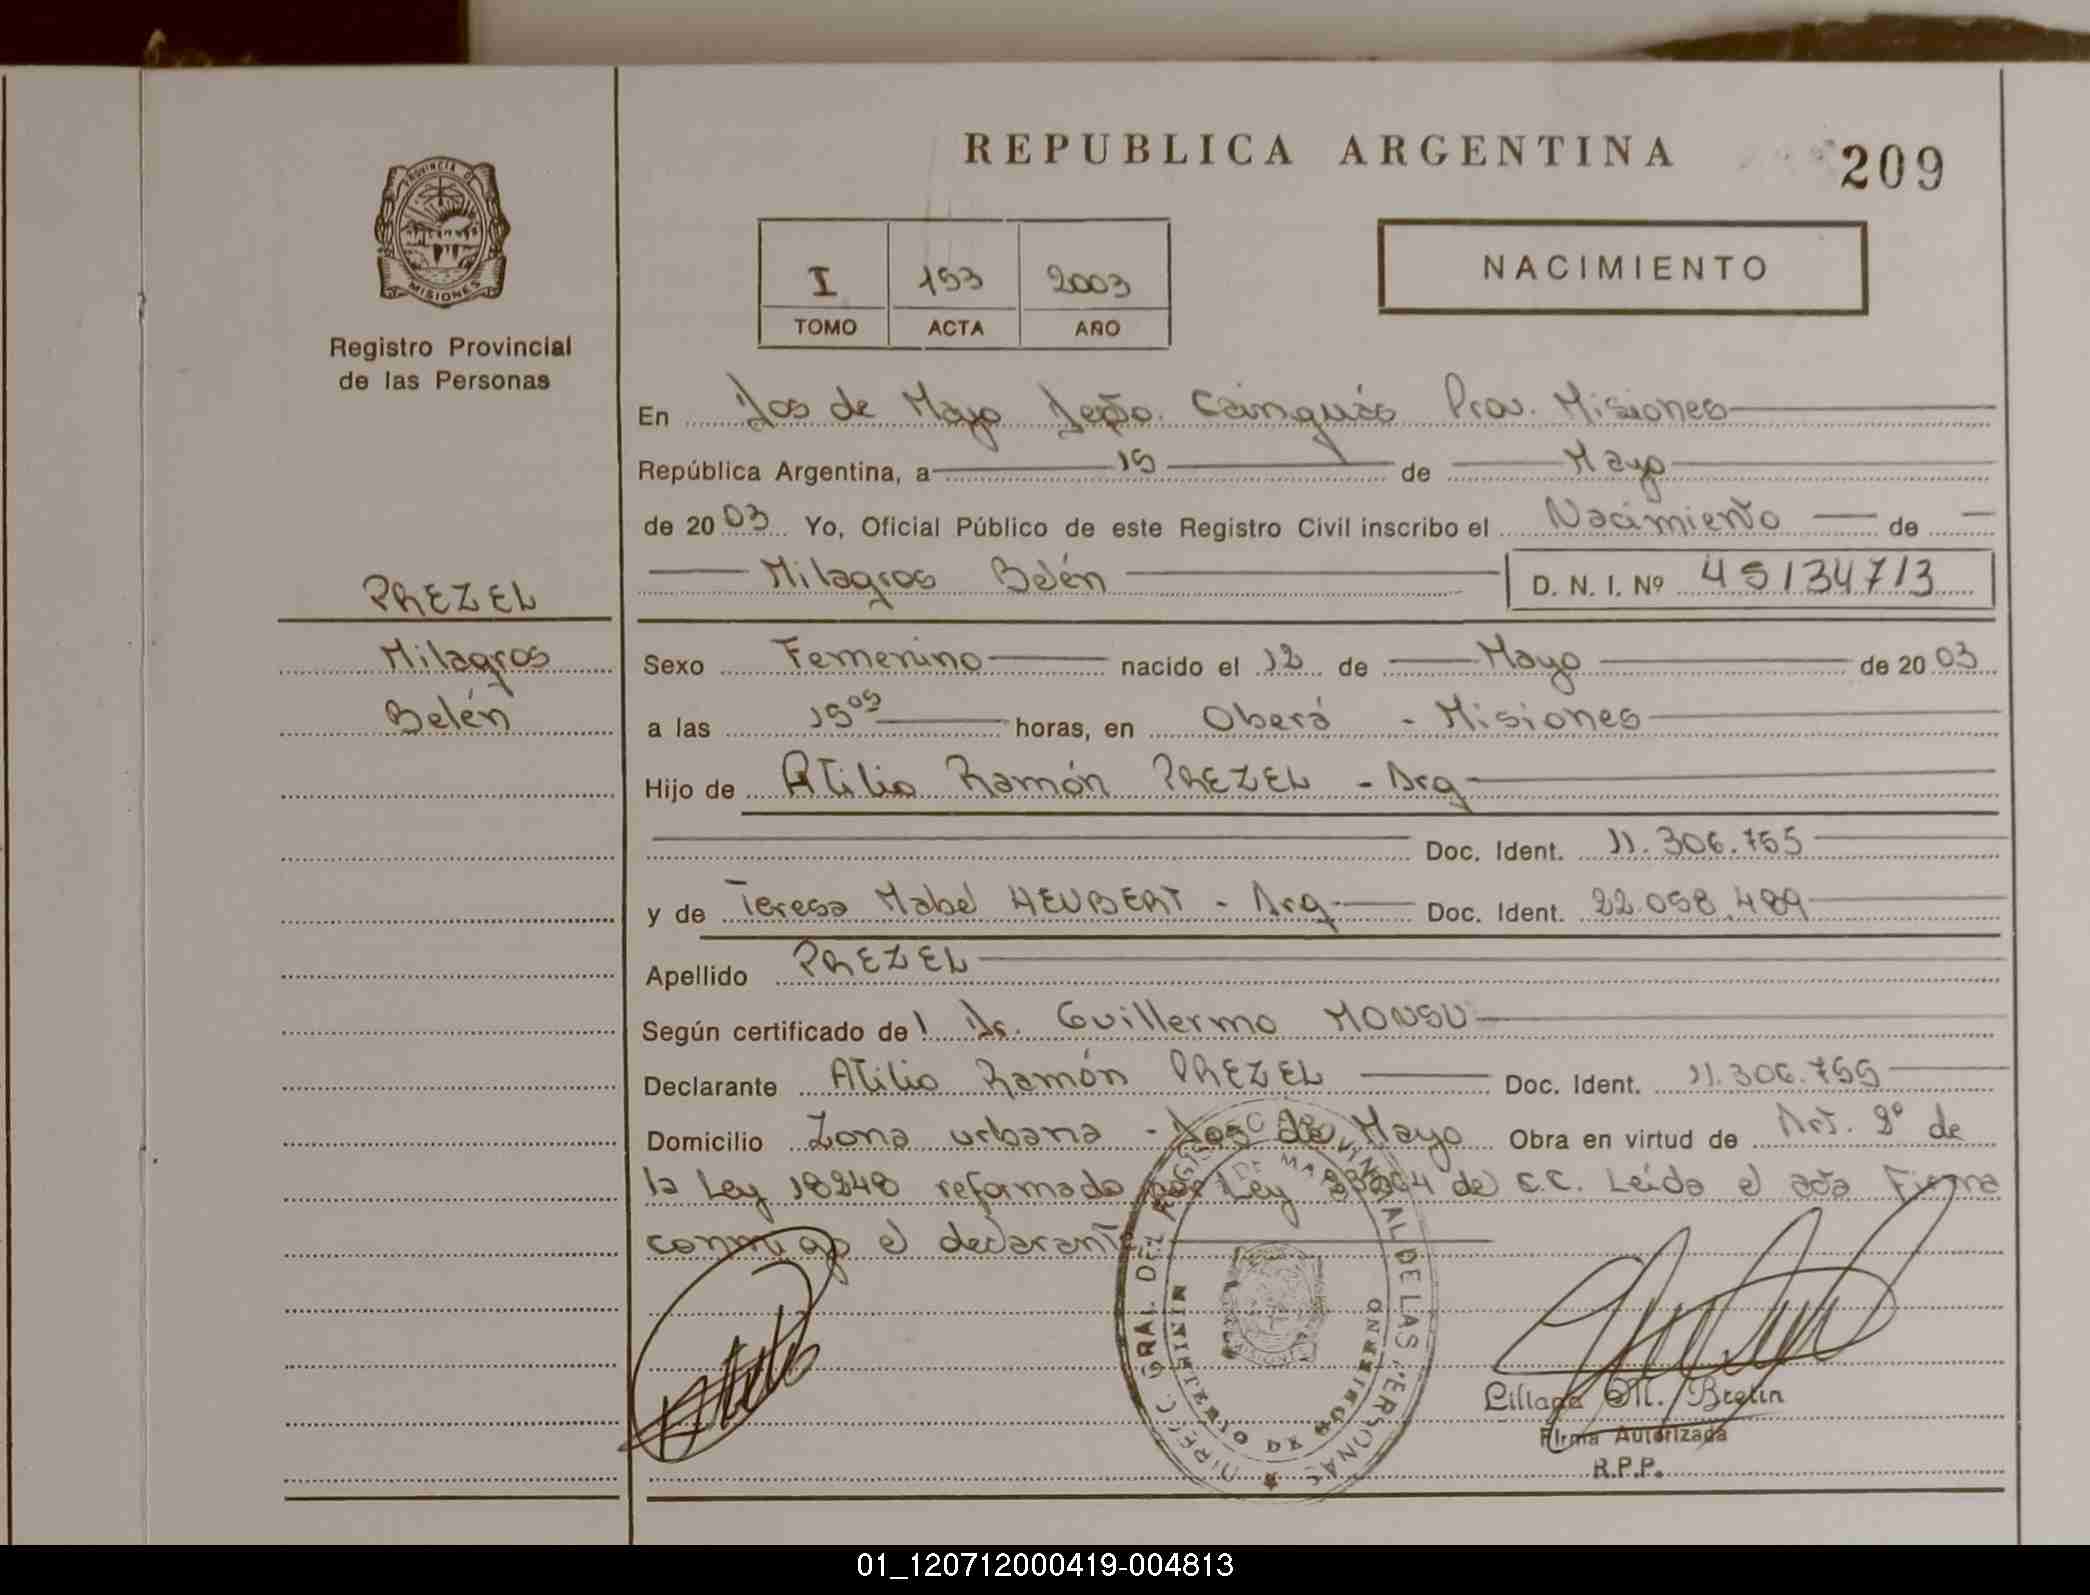 REPUBLICA ARGENTINA
209
PROVINCIA D
MISIONES
Registro Provincial
de las Personas
I 193 2003
TOMO ACTA AÑO
NACIMIENTO
En Dos de Mayo Depto. Cainguás Prov. Misiones
República Argentina, a 15 de Mayo
de 2003 Yo, Oficial Público de este Registro Civil inscribo el Nacimiento de
Milagros Belén D. N. I. Nº 45134713
PREZEL
Milagros
Belén
Sexo Femenino nacido el 12 de Mayo de 2003
a las 15⁰⁵ horas, en Oberá - Misiones
Hijo de Atilio Ramón PREZEL - Arg
Doc. Ident. 11.306.755
y de Teresa Mabel HEUBERT - Arg Doc. Ident. 22.058.489
Apellido PREZEL
Según certificado de! Dr. Guillermo MONSU
Declarante Atilio Ramón PREZEL Doc. Ident. 11.306.755
Domicilio Zona urbana - Dos de Mayo Obra en virtud de Art. 2º de
la Ley 18248 reformado por Ley de C.C. Leída el acta Firma
conmigo el declarante
DIREC. GRAL. DEL REGISTRO PROVINCIAL DE LAS PERSONAS
MINISTERIO DE GOBIERNO
Liliana M. Brelin
Firma Autorizada
R.P.P.
01_120712000419-004813